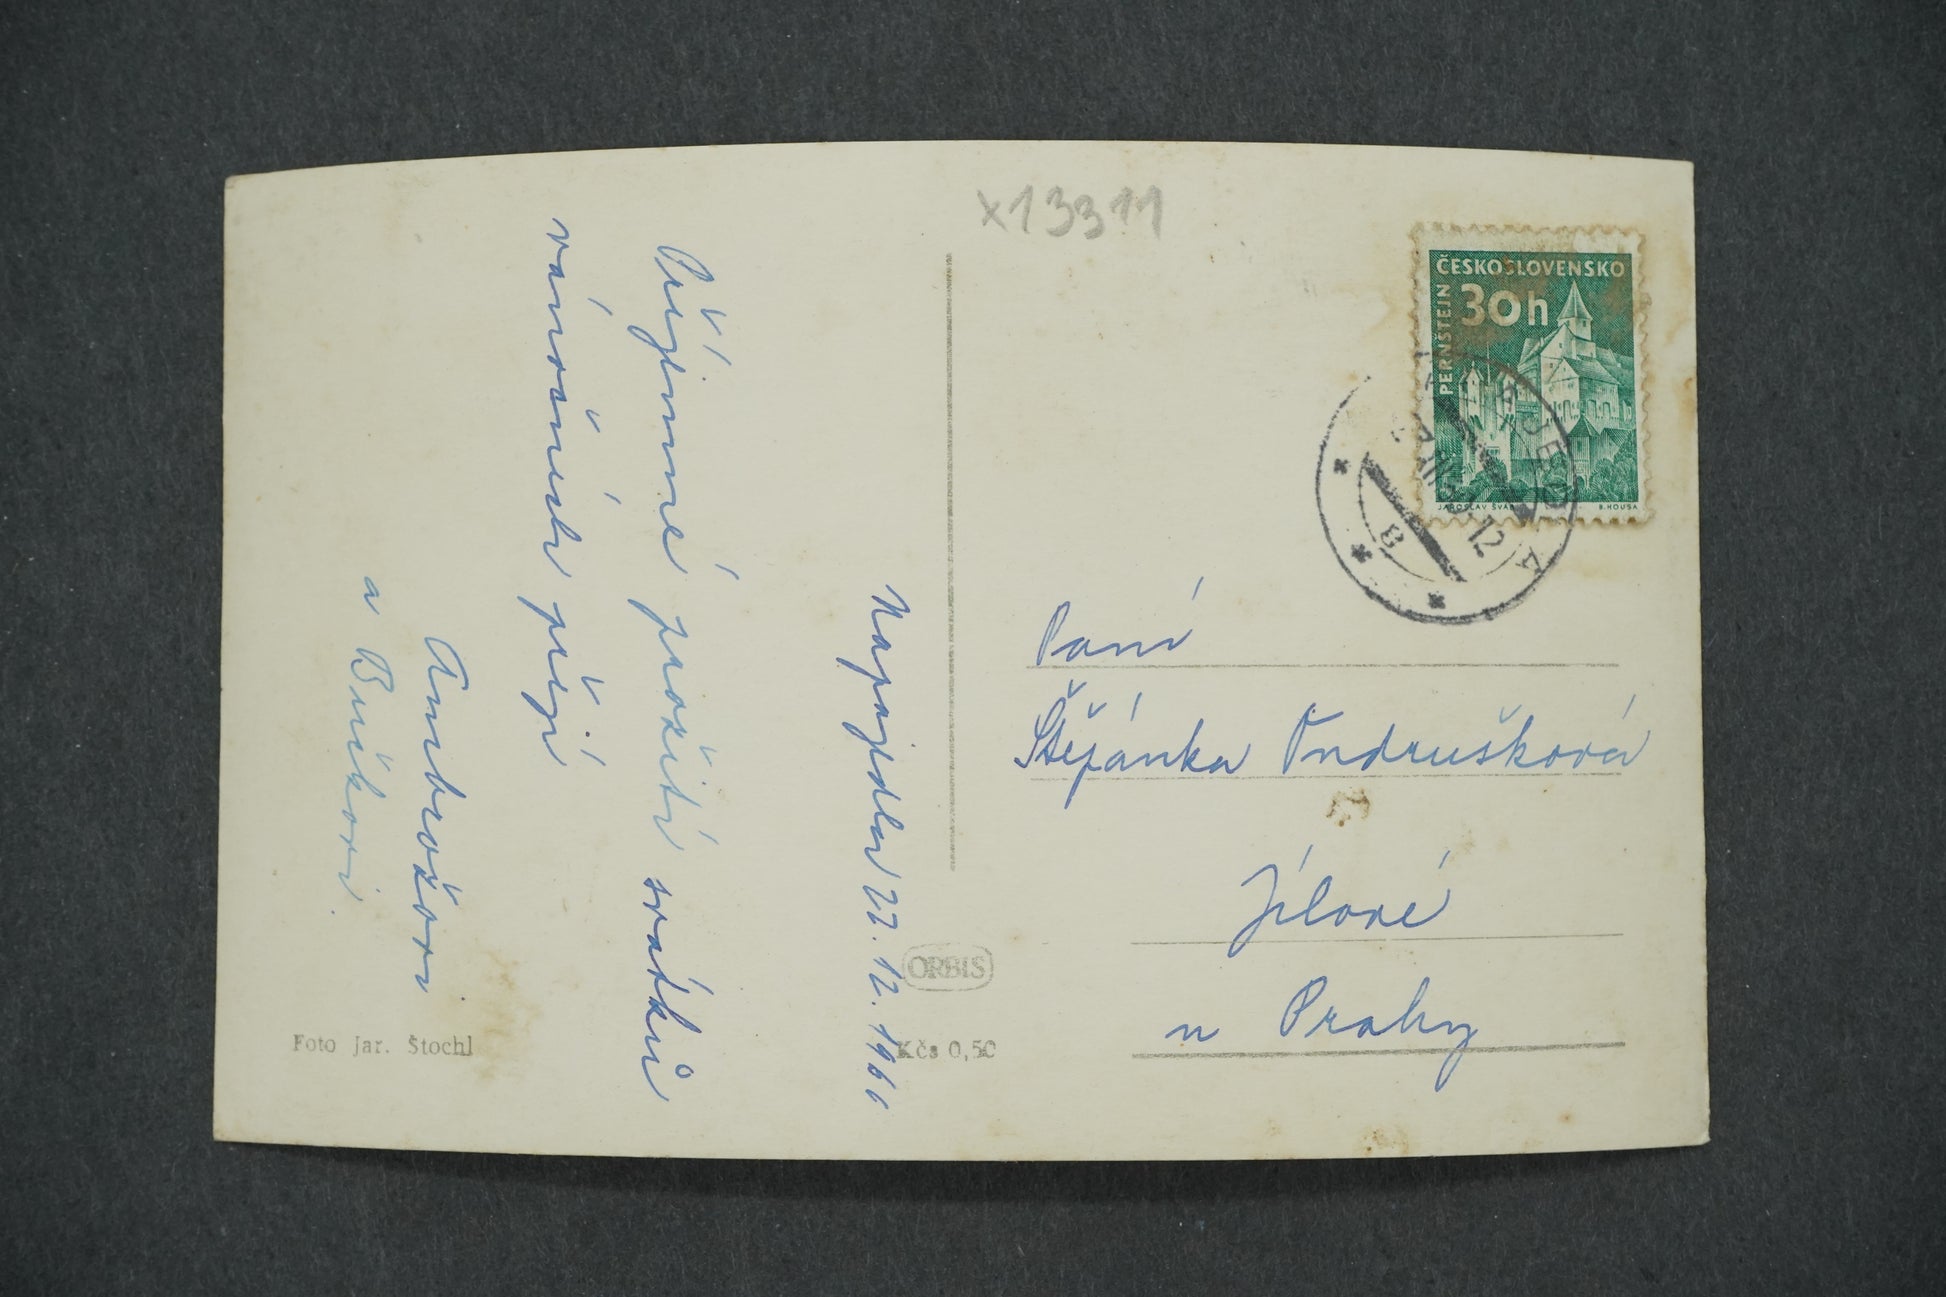 x13311
ČESKOSLOVENSKO
30h
PERNŠTEJN
JAROSLAV ŠVÁB
B. HOUSA
Napajedla 22. 12. 1960
Příjemné prožití svátků
vánočních přejí
Ambrožovi
a Buškovi.
Paní
Štěpánka Ondrušková
Jílové
u Prahy
ORBIS
Kčs 0,50
Foto Jar. Štochl